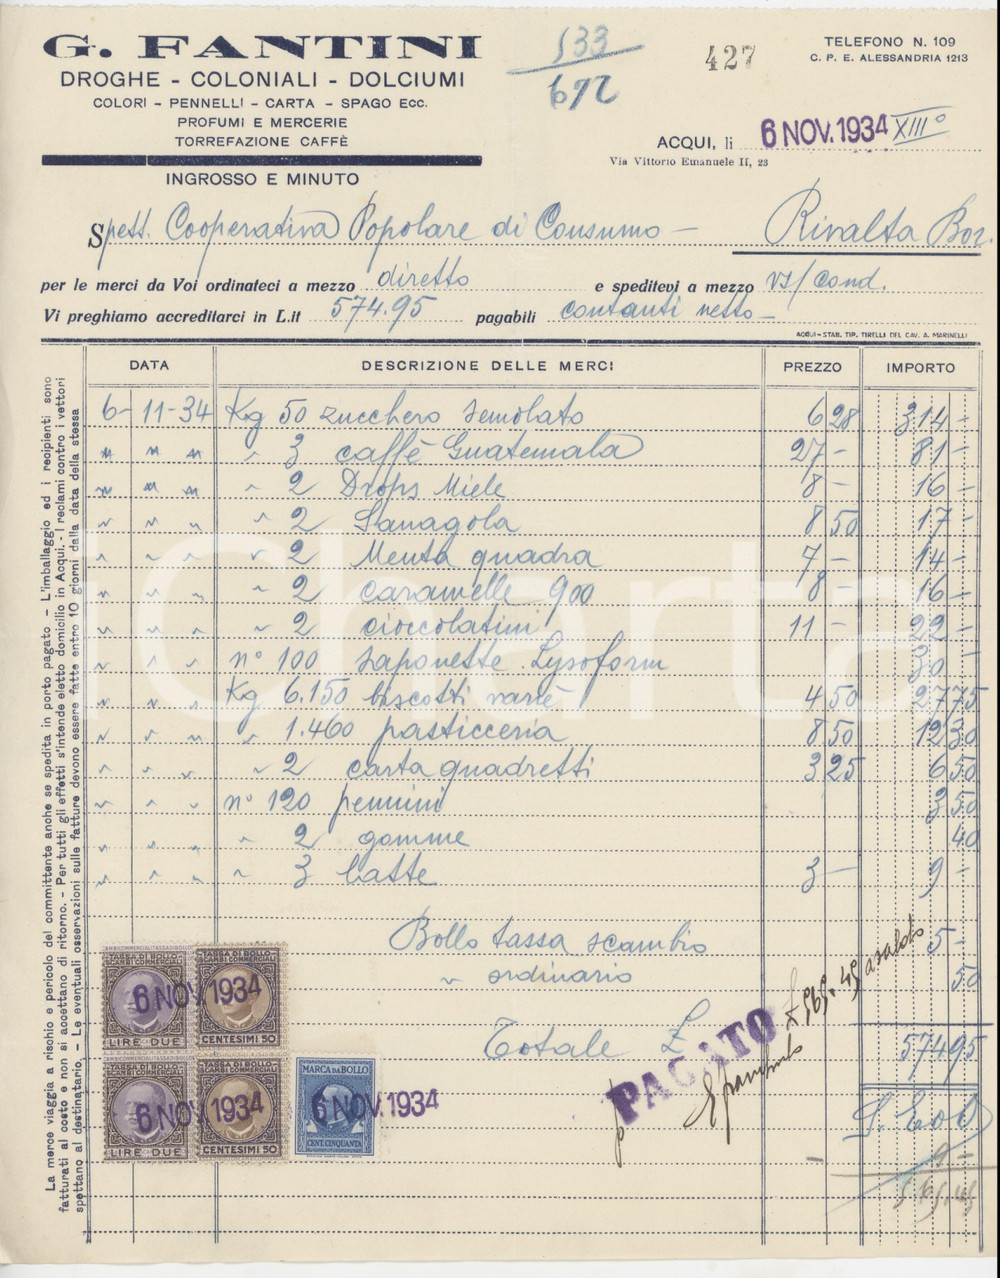 G. FANTINI
DROGHE - COLONIALI - DOLCIUMI
COLORI - PENNELLI - CARTA - SPAGO Ecc.
PROFUMI E MERCERIE
TORREFAZIONE CAFFÈ
INGROSSO E MINUTO
533
672
427
TELEFONO N. 109
C. P. E. ALESSANDRIA 1213
ACQUI, lì 6 NOV. 1934 XIII°
Via Vittorio Emanuele II, 23
Spett. Cooperativa Popolare di Consumo - Rivalta Bor.
per le merci da Voi ordinateci a mezzo diretto e speditevi a mezzo vs/ Cond.
Vi preghiamo accreditarci in L.it 574.95 pagabili contanti netto -
ACQUI - STAB. TIP. TIRELLI DEL CAV. A. MARINELLI
DATA DESCRIZIONE DELLE MERCI PREZZO IMPORTO
6 - 11 - 34 Kg 50 zucchero semolato 6 28 314 -
" " " " 3 caffè Guatemala 27 - 81 -
" " " " 2 Drops Miele 8 - 16 -
" " " " 2 Sanagola 8 50 17 -
" " " " 2 Menta quadra 7 - 14 -
" " " " 2 caramelle 900 8 - 16 -
" " " " 2 cioccolatini 11 - 22 -
" " " n° 100 saponette Lysoform 30 -
" " " Kg 6.150 biscotti varie 4 50 27 75
" " " " 1.460 pasticceria 8 50 12 30
" " " " 2 carta quadretti 3 25 6 50
" " " n° 120 pennini 3 50
" " " " 2 gomme 40
" " " " 3 latte 3 - 9 -
Bollo tassa scambio 5 -
" ordinario 50
Totale £ 574 95
PAGATO
£ 565.45 a saldo
9 -
565.45
TASSA DI BOLLO
SCAMBI COMMERCIALI
LIRE DUE
TASSA DI BOLLO
SCAMBI COMMERCIALI
CENTESIMI 50
6 NOV. 1934
LIRE DUE
TASSA DI BOLLO
SCAMBI COMMERCIALI
CENTESIMI 50
6 NOV. 1934
MARCA DA BOLLO
CENT. CINQUANTA
6 NOV. 1934
La merce viaggia a rischio e pericolo del committente anche se spedita in porto pagato - L'imballaggio ed i recipienti sono
fatturati al costo e non si accettano di ritorno. - Per tutti gli effetti s'intende eletto domicilio in Acqui. - I reclami contro i vettori
spettano al destinatario. - Le eventuali osservazioni sulle fatture devono essere fatte entro 10 giorni dalla data della stessa
iCharta